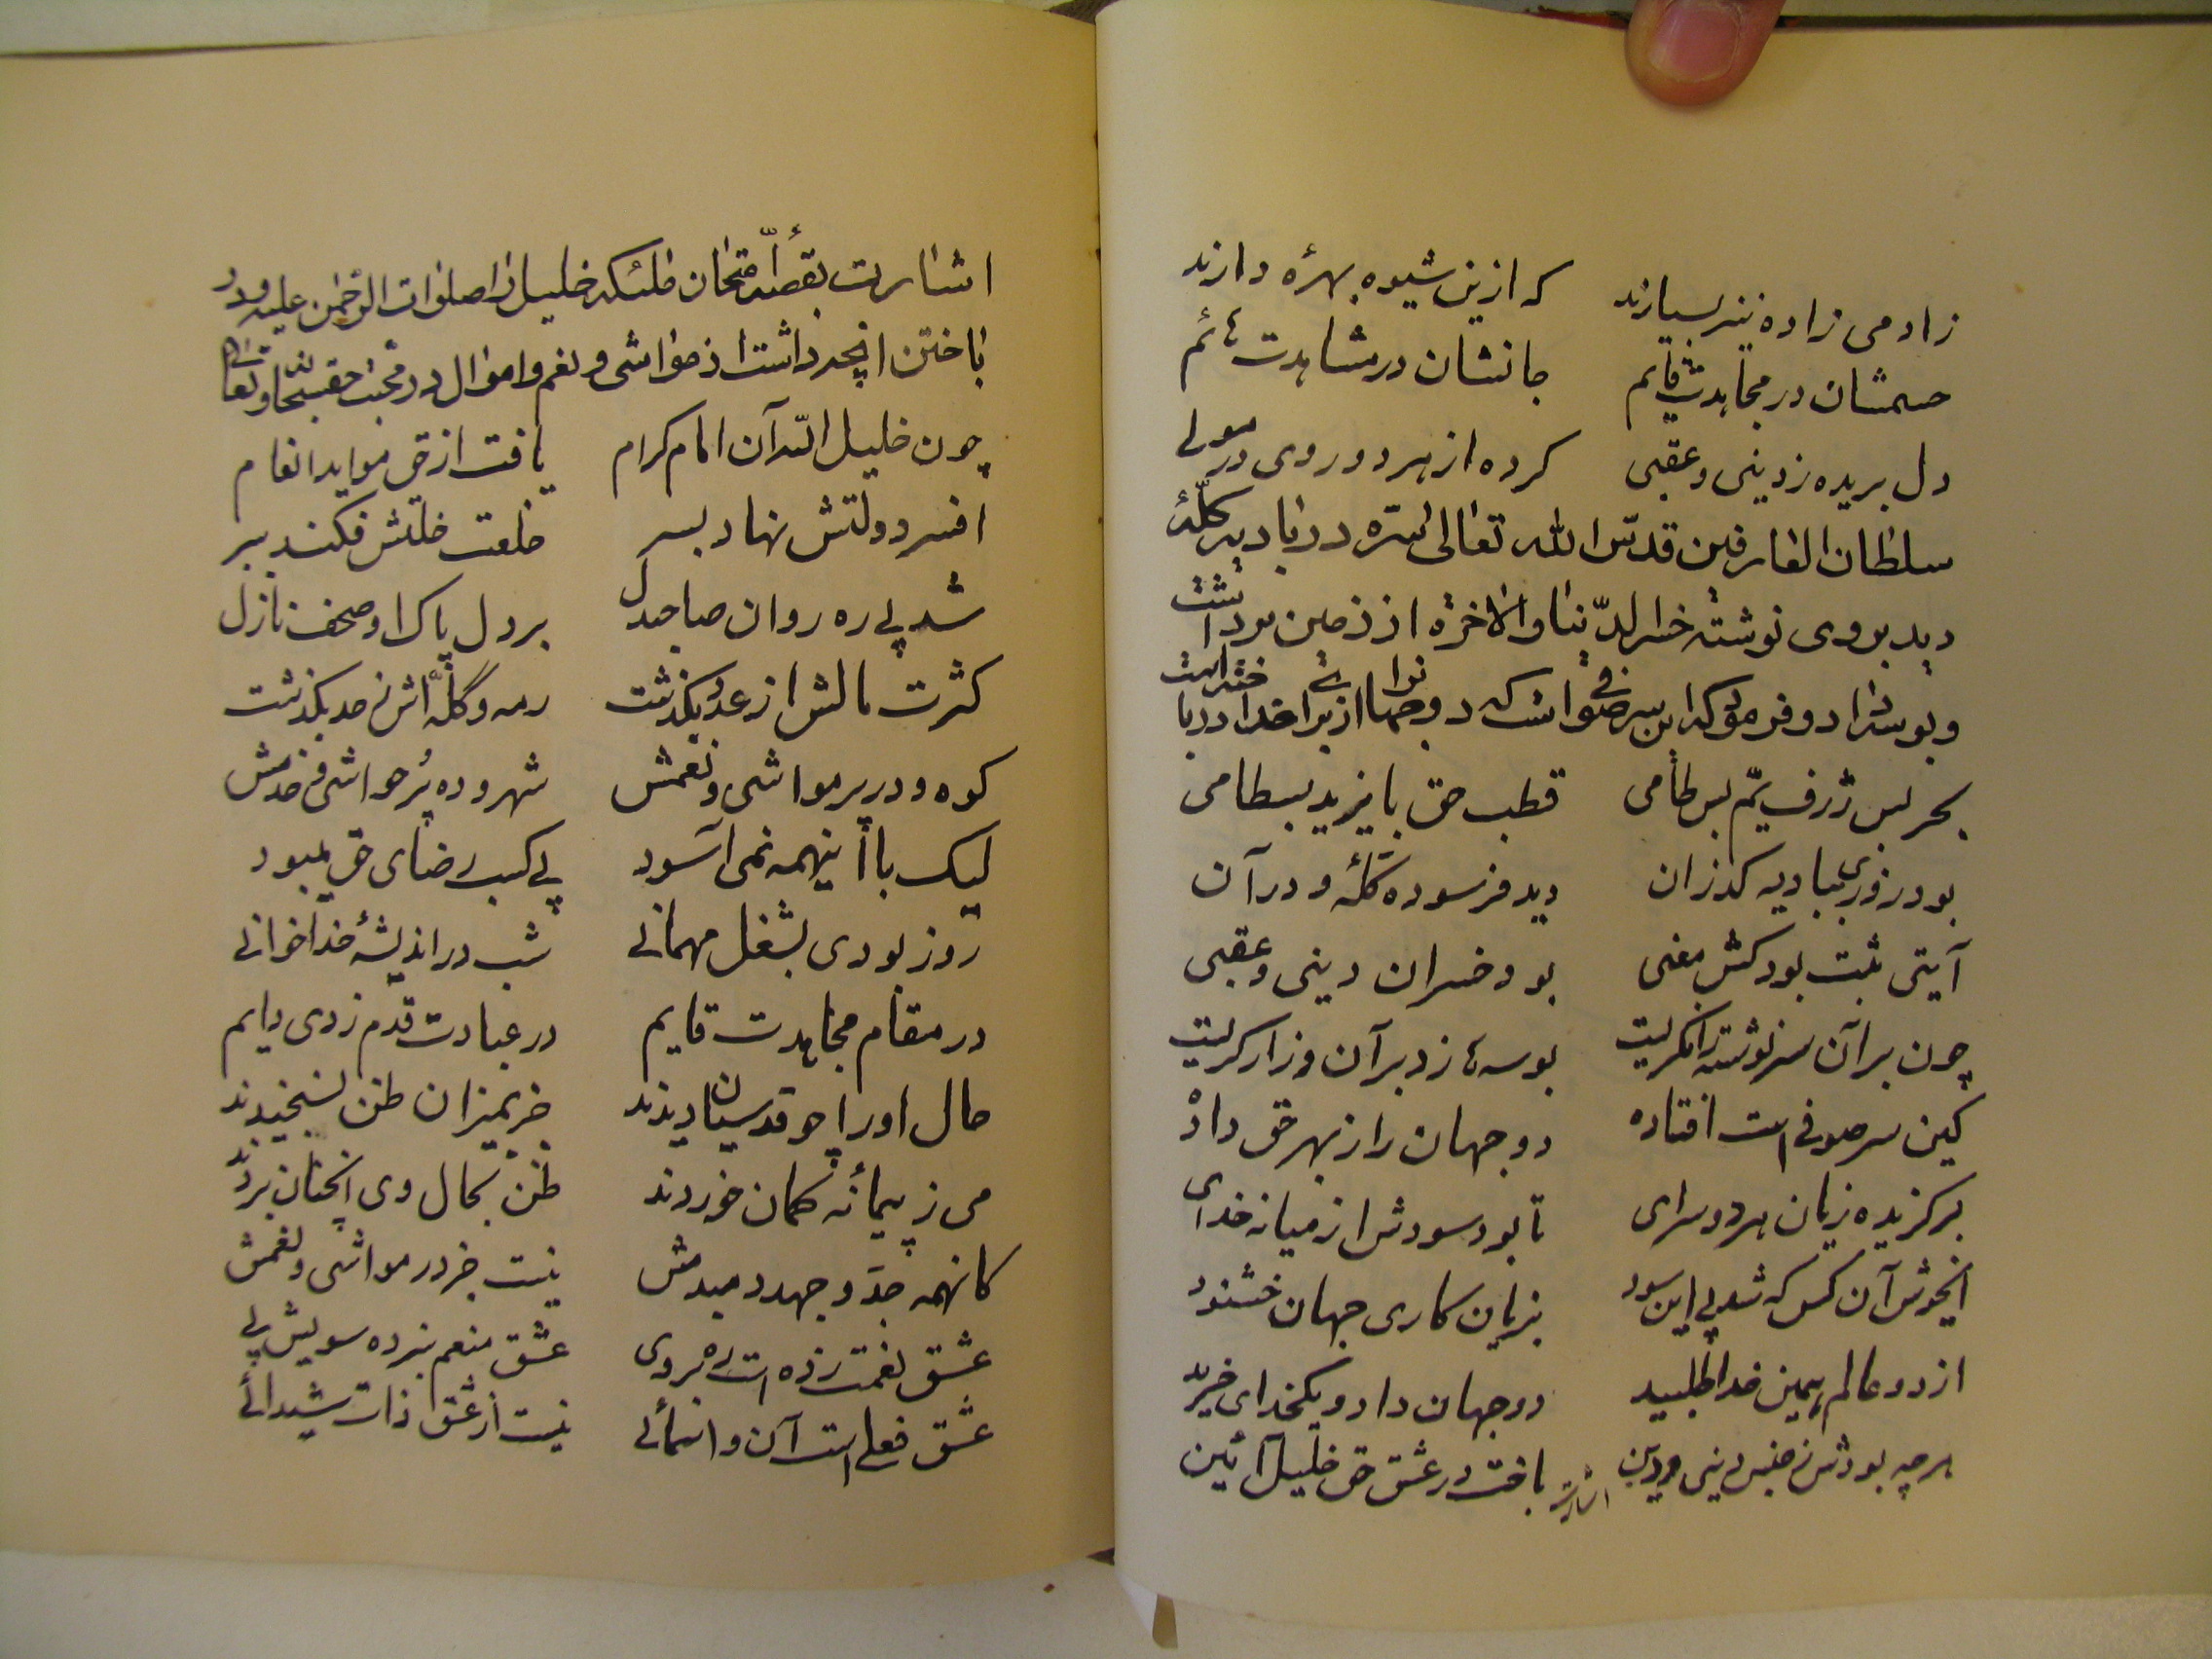 زادمی زاده نیز بسیارند که ازین شیوه بهرهٔ دارند
جسمشان در مجاهدت قایم جانشان در مشاهدت هائم
دل بریده ز دینی و عقبی کرده از هر دو روی در مولی
سلطان العارفین قدس الله تعالی سره در بادیه کلهٔ
دید بروی نوشته خسر الدنیا والاخرة از زمین برداشت
و بوسه داد و فرمود که این سر صوفی است که دو جهان را از برای خدا درباخته است
بحر بس ژرف یم بس طامی قطب حق بایزید بسطامی
بود روزی ببادیه گذران دید فرسوده کلهٔ و در آن
آیتی ثبت بود کش معنی بود خسران دینی و عقبی
چون بر آن سرنوشته را نگریست بوسه‌ها زد بر آن و زار گریست
کین سر صوفی است افتاده دو جهان را ز بهر حق داده
برگزیده زیان هر دو سرای تا بود سودش از میانه خدای
ایخوش آن کس که شد پی این سود بزیان کاری جهان خشنود
از دو عالم همین خدا طلبید دو جهان داد و یکخدای خرید
هرچه بودش ز جنس دینی و دین باخت در عشق حق خلیل آئین
اشارت
اشارت بقصه امتحان ملئکه خلیل را صلوات الرحمن علیه و در
باختن انچه داشت از مواشی و نعم و اموال در محبت حق سبحانه و تعالی
چون خلیل الله آن امام کرام یافت از حق مواید انعام
افسر دولتش نهاد بسر خلعت خلتش فکند ببر
شد پی ره روان صاحبدل بر دل پاک او صحف نازل
کثرت مالش از عدد بگذشت رمه و گله‌اش ز حد بگذشت
کوه و در پر مواشی و نعمش شهر و ده پر حواشی و خدمش
لیک با اینهمه نمی آسود پی کسب رضای حق میبود
روز بودی بشغل مهمانی شب در اندیشهٔ خدا خوانی
در مقام مجاهدت قایم در عبادت قدم زدی دایم
حال او را چو قدسیان دیدند جز بمیزان ظن نسنجیدند
می ز پیمانه گمان خوردند ظن بحال وی انچنان بردند
کانهمه جد و جهد دمبدمش نیست جز در مواشی و نعمش
عشق نعمت زده است ره بروی عشق منعم نبرده سویش پی
عشق فعلی است آن و اسمائی نیست از عشق ذات شیدائی